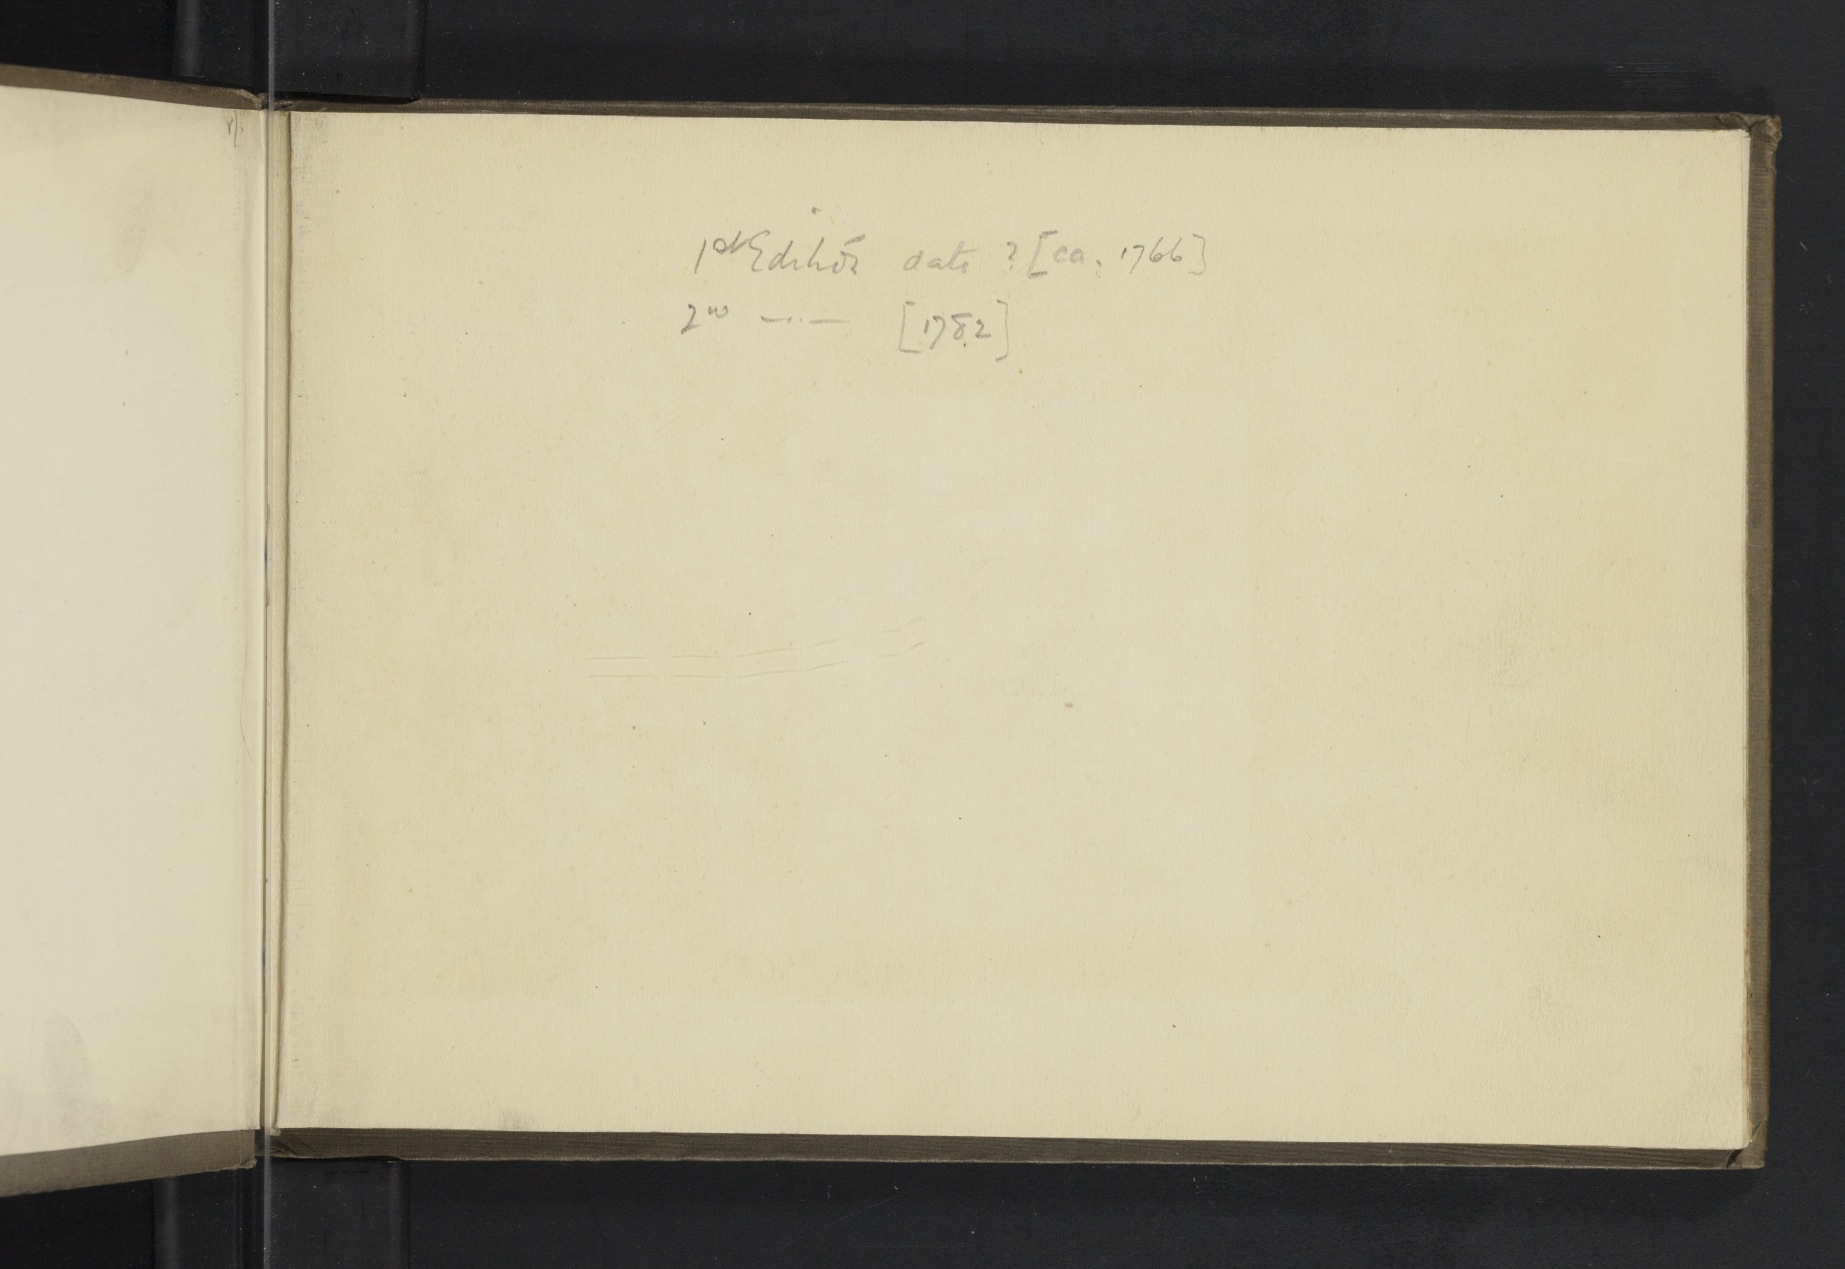 1st Editiō date ? [ca. 1766]
2nd —··— [1782]